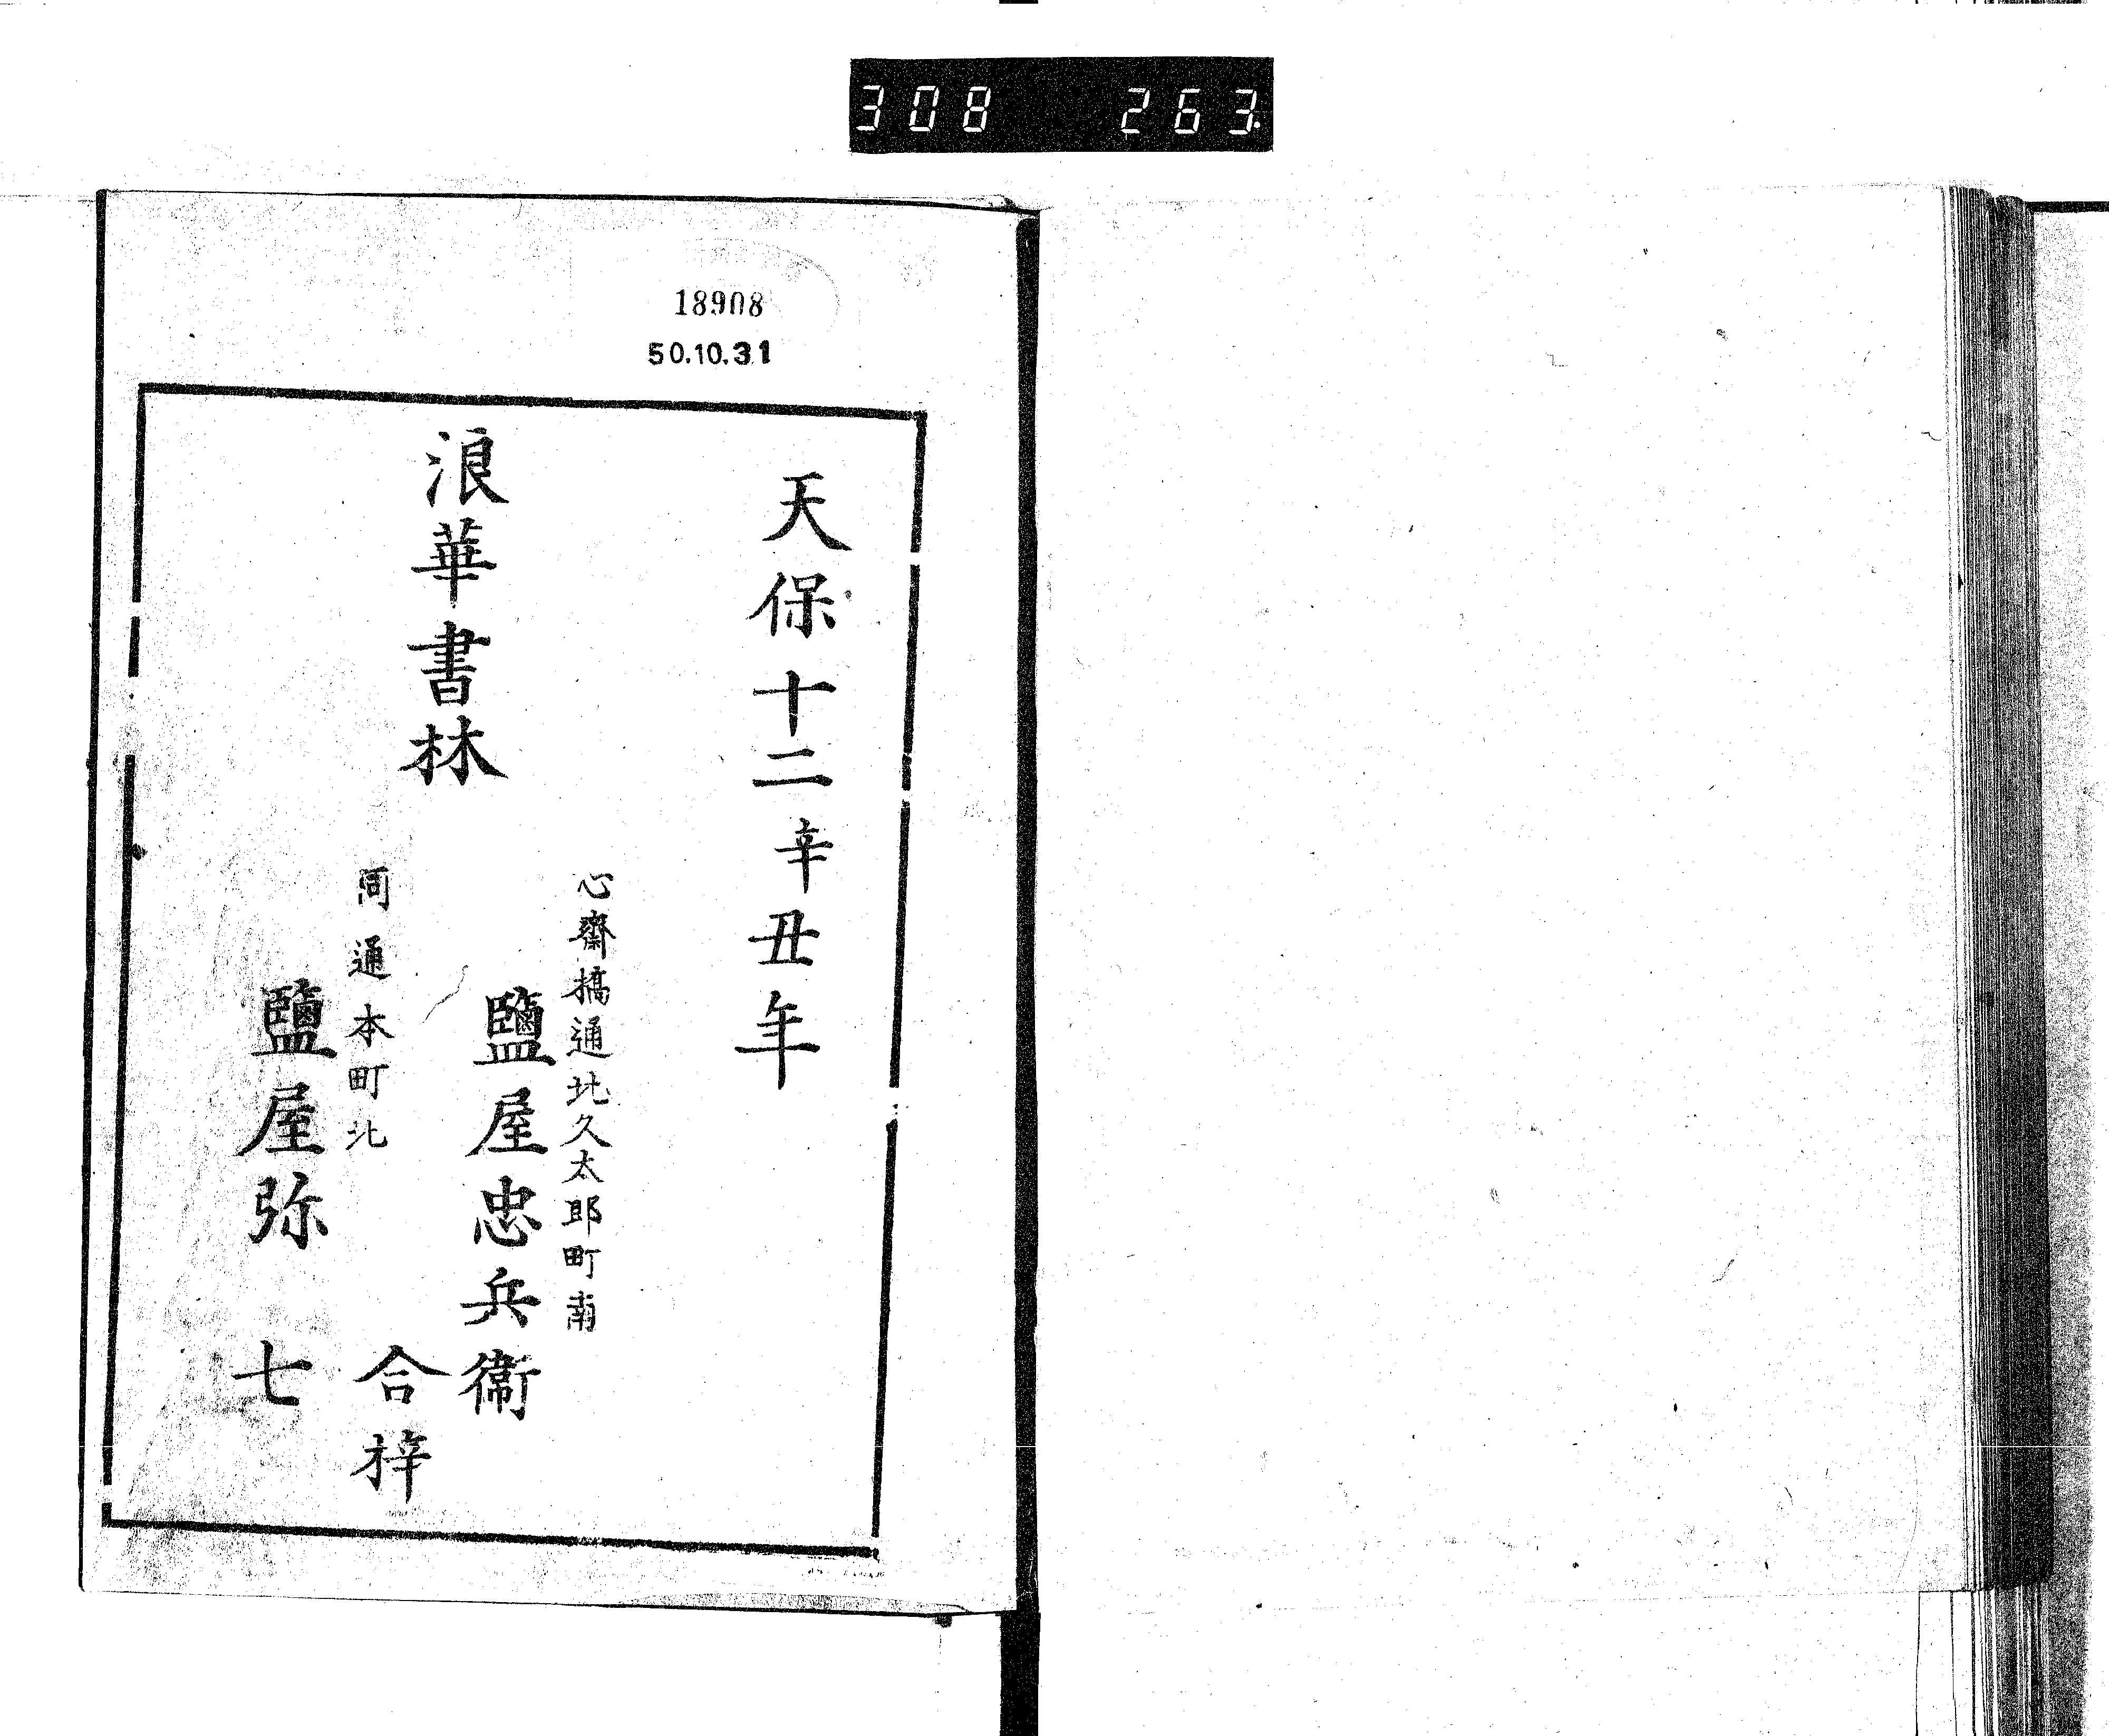 308 263.
18908
50.10.31
天保十二辛丑年
心齋橋通北久太郎町南
鹽屋忠兵衞
浪華書林
合梓
同通本町北
鹽屋弥七